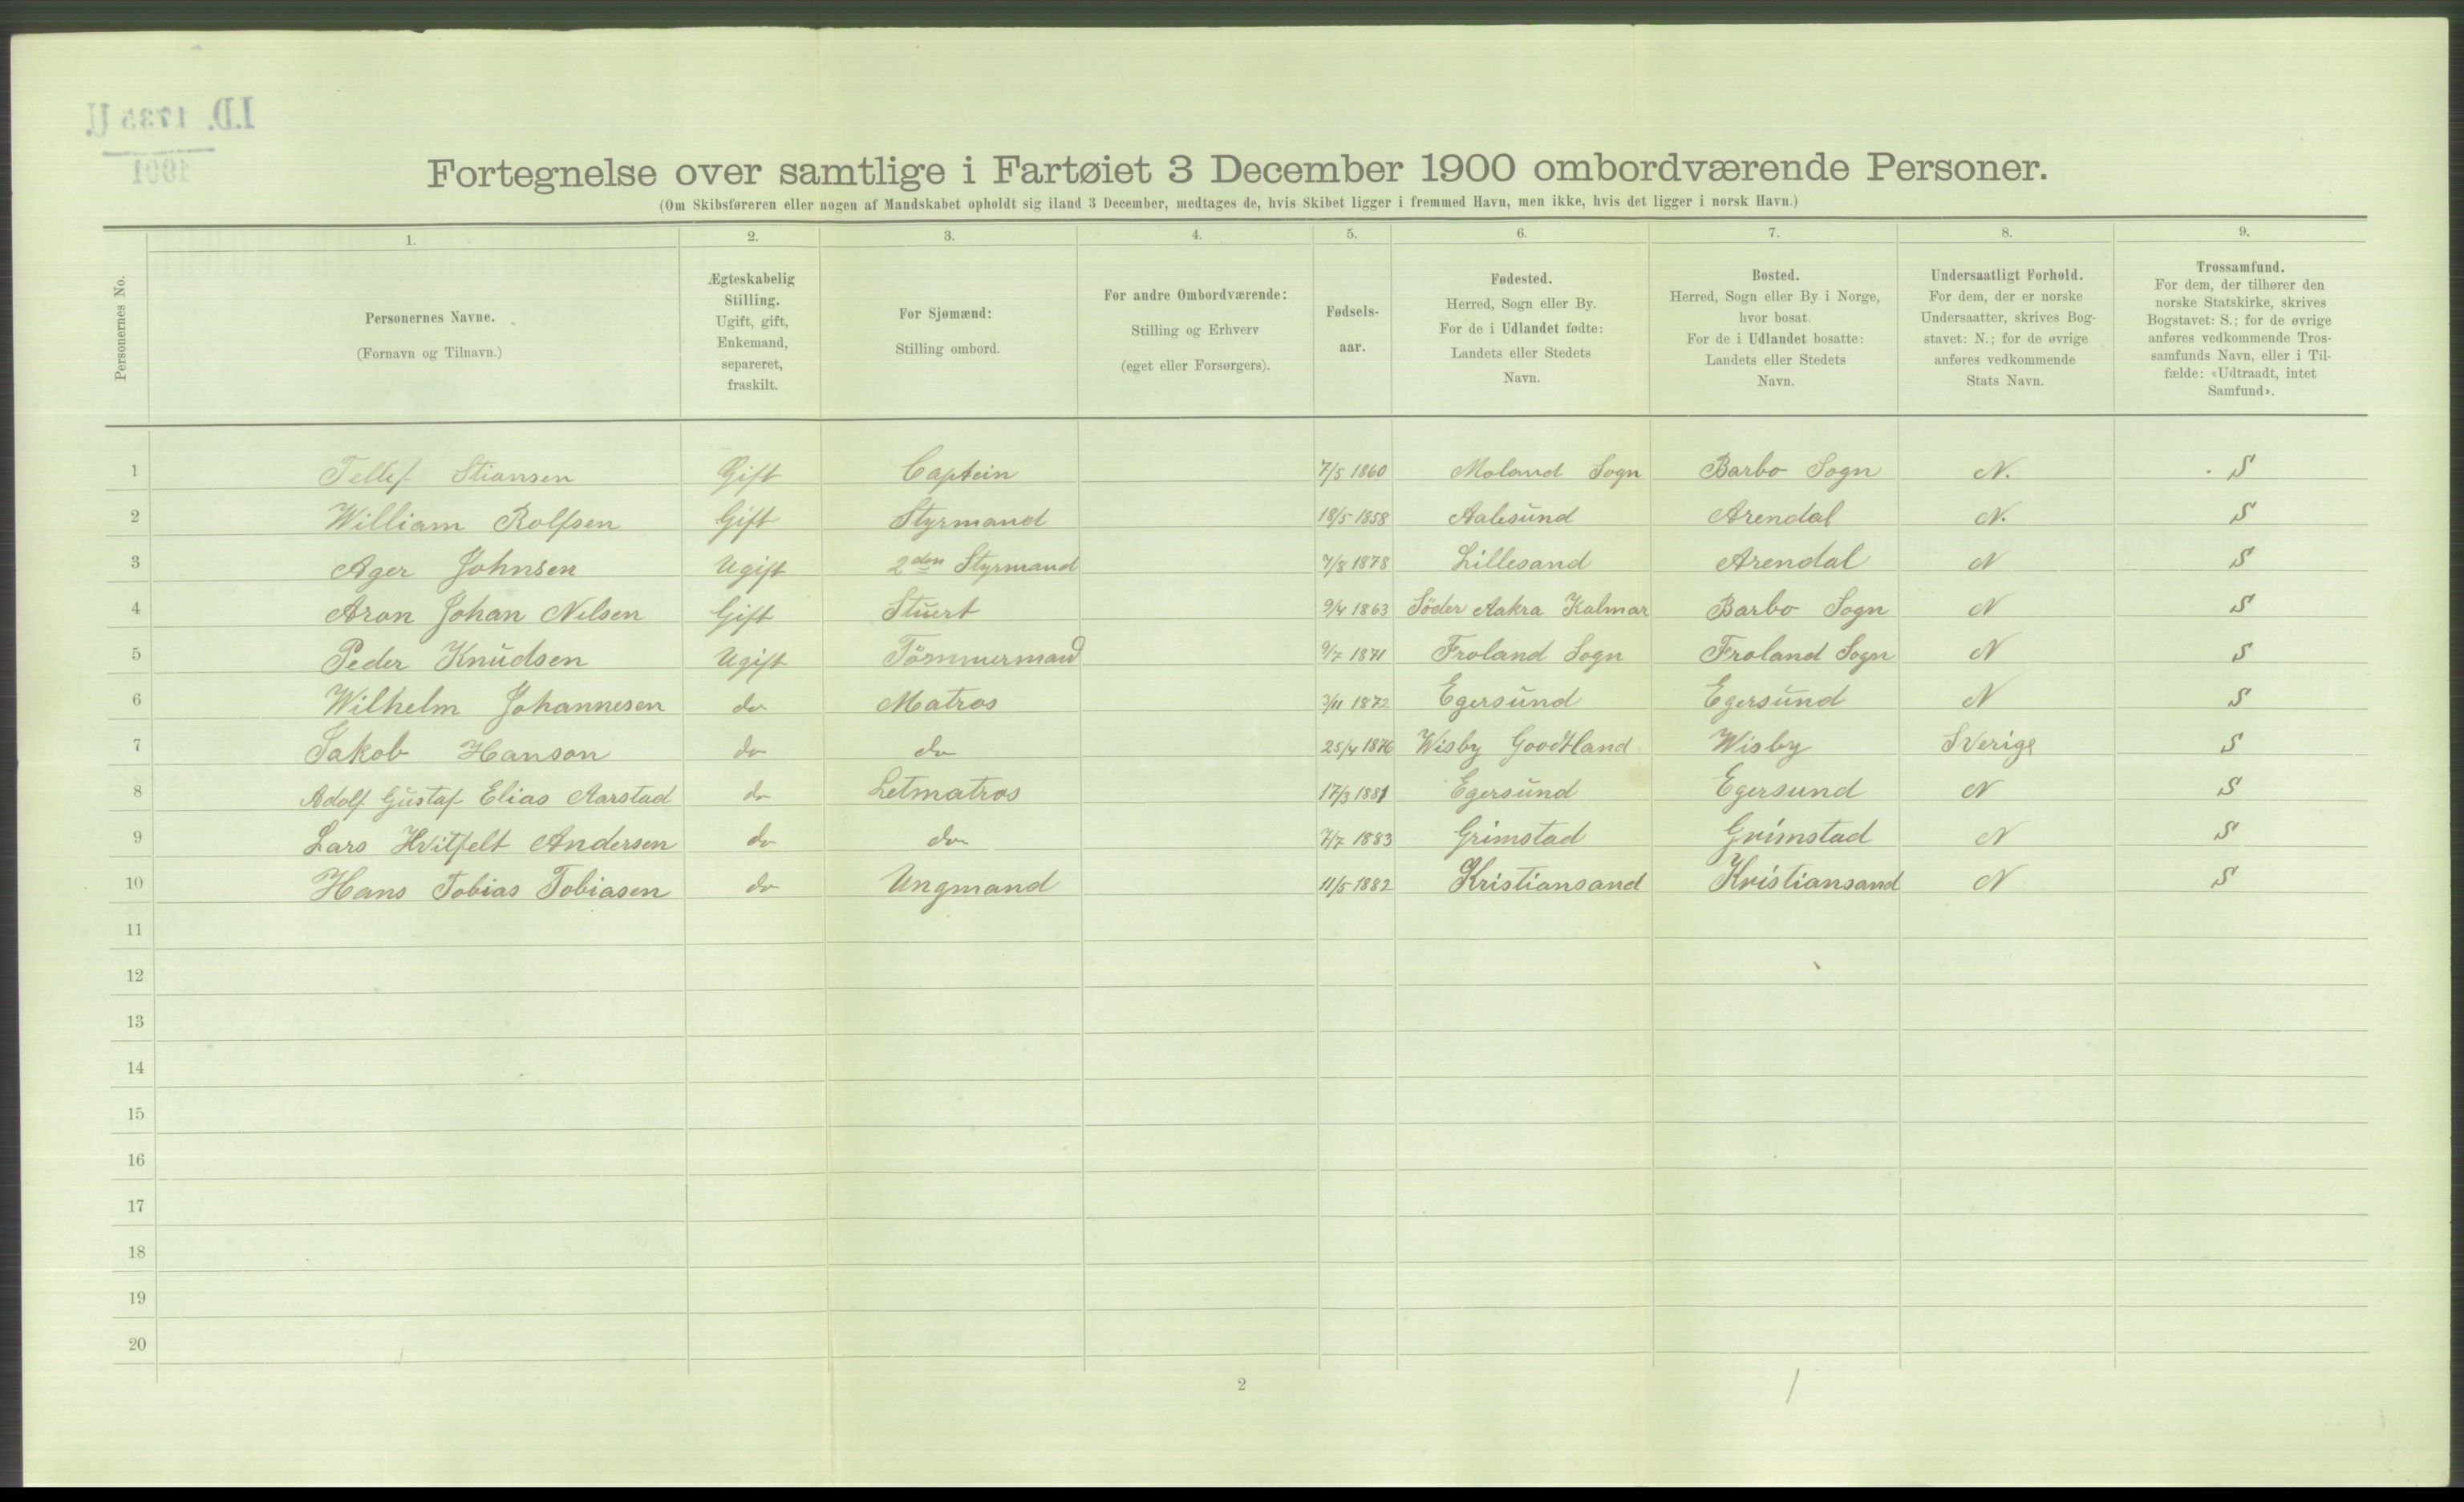 I.D. 1735 U.
1901
Fortegnelse over samtlige i Fartøiet 3 December 1900 ombordværende Personer.
(Om Skibsføreren eller nogen af Mandskabet opholdt sig iland 3 December, medtages de, hvis Skibet ligger i fremmed Havn, men ikke, hvis det ligger i norsk Havn.)
Personernes No.
1. 2. 3. 4. 5. 6. 7. 8. 9.
Personernes Navne.
(Fornavn og Tilnavn.)
Ægteskabelig
Stilling.
Ugift, gift,
Enkemand,
separeret,
fraskilt.
For Sjømænd:
Stilling ombord.
For andre Ombordværende:
Stilling og Erhverv
(eget eller Forsørgers).
Fødsels-
aar.
Fødested.
Herred, Sogn eller By.
For de i Udlandet fødte:
Landets eller Stedets
Navn.
Bosted.
Herred, Sogn eller By i Norge,
hvor bosat.
For de i Udlandet bosatte:
Landets eller Stedets
Navn.
Undersaatligt Forhold.
For dem, der er norske
Undersaatter, skrives Bog-
stavet: N.; for de øvrige
anføres vedkommende
Stats Navn.
Trossamfund.
For dem, der tilhører den
norske Statskirke, skrives
Bogstavet: S.; for de øvrige
anføres vedkommende Tros-
samfunds Navn, eller i Til-
fælde: «Udtraadt, intet
Samfund».
1 Tellef Stiansen Gift Captein 7/5 1860 Moland Sogn Barbo Sogn N. S
2 William Rolfsen Gift Styrmand 18/5 1858 Aalesund Arendal N. S
3 Ager Johnsen Ugift 2den Styrmand 7/8 1878 Lillesand Arendal N S
4 Aron Johan Nilsen Gift Stuert 9/4 1863 Söder Aakra Kalmar Barbo Sogn N S
5 Peder Knudsen Ugift Tömmermand 9/7 1871 Froland Sogn Froland Sogn N S
6 Wilhelm Johannesen do Matros 3/11 1872 Egersund Egersund N S
7 Jakob Hanson do do 25/4 1876 Wisby Goodtland Wisby Sverige S
8 Adolf Gustaf Elias Aarstad do Letmatros 17/3 1881 Egersund Egersund N S
9 Lars Hvitfelt Andersen do do 7/7 1883 Grimstad Grimstad N S
10 Hans Tobias Tobiasen do Ungmand 11/5 1882 Kristiansand Kristiansand N S
11
12
13
14
15
16
17
18
19
20
2